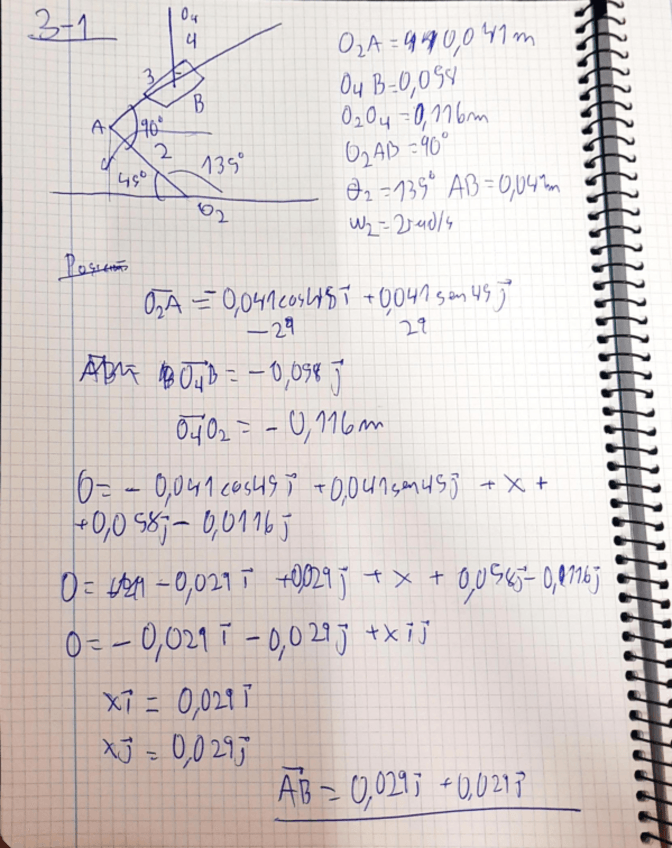 3-1
O4
4
3
B
A
90°
2
135°
45°
O2
O2A = 0,041m
O4B = 0,058
O2O4 = 0,116m
O2AB = 90°
θ2 = 135° AB = 0,041m
W2 = 2rad/s
Posición
O2A = 0,041cos45 i + 0,041 sen 45 j
-29 29
O4B = -0,058 j
O4O2 = - 0,116m
0 = - 0,041 cos45 i + 0,041sen45j + x +
+0,058j - 0,0116j
0 = -0,029 i +0,029 j + x + 0,058j - 0,116j
0 = - 0,029 i - 0,029 j + x i j
x i = 0,029 i
x j = 0,029 j
AB = 0,029 j + 0,029 i